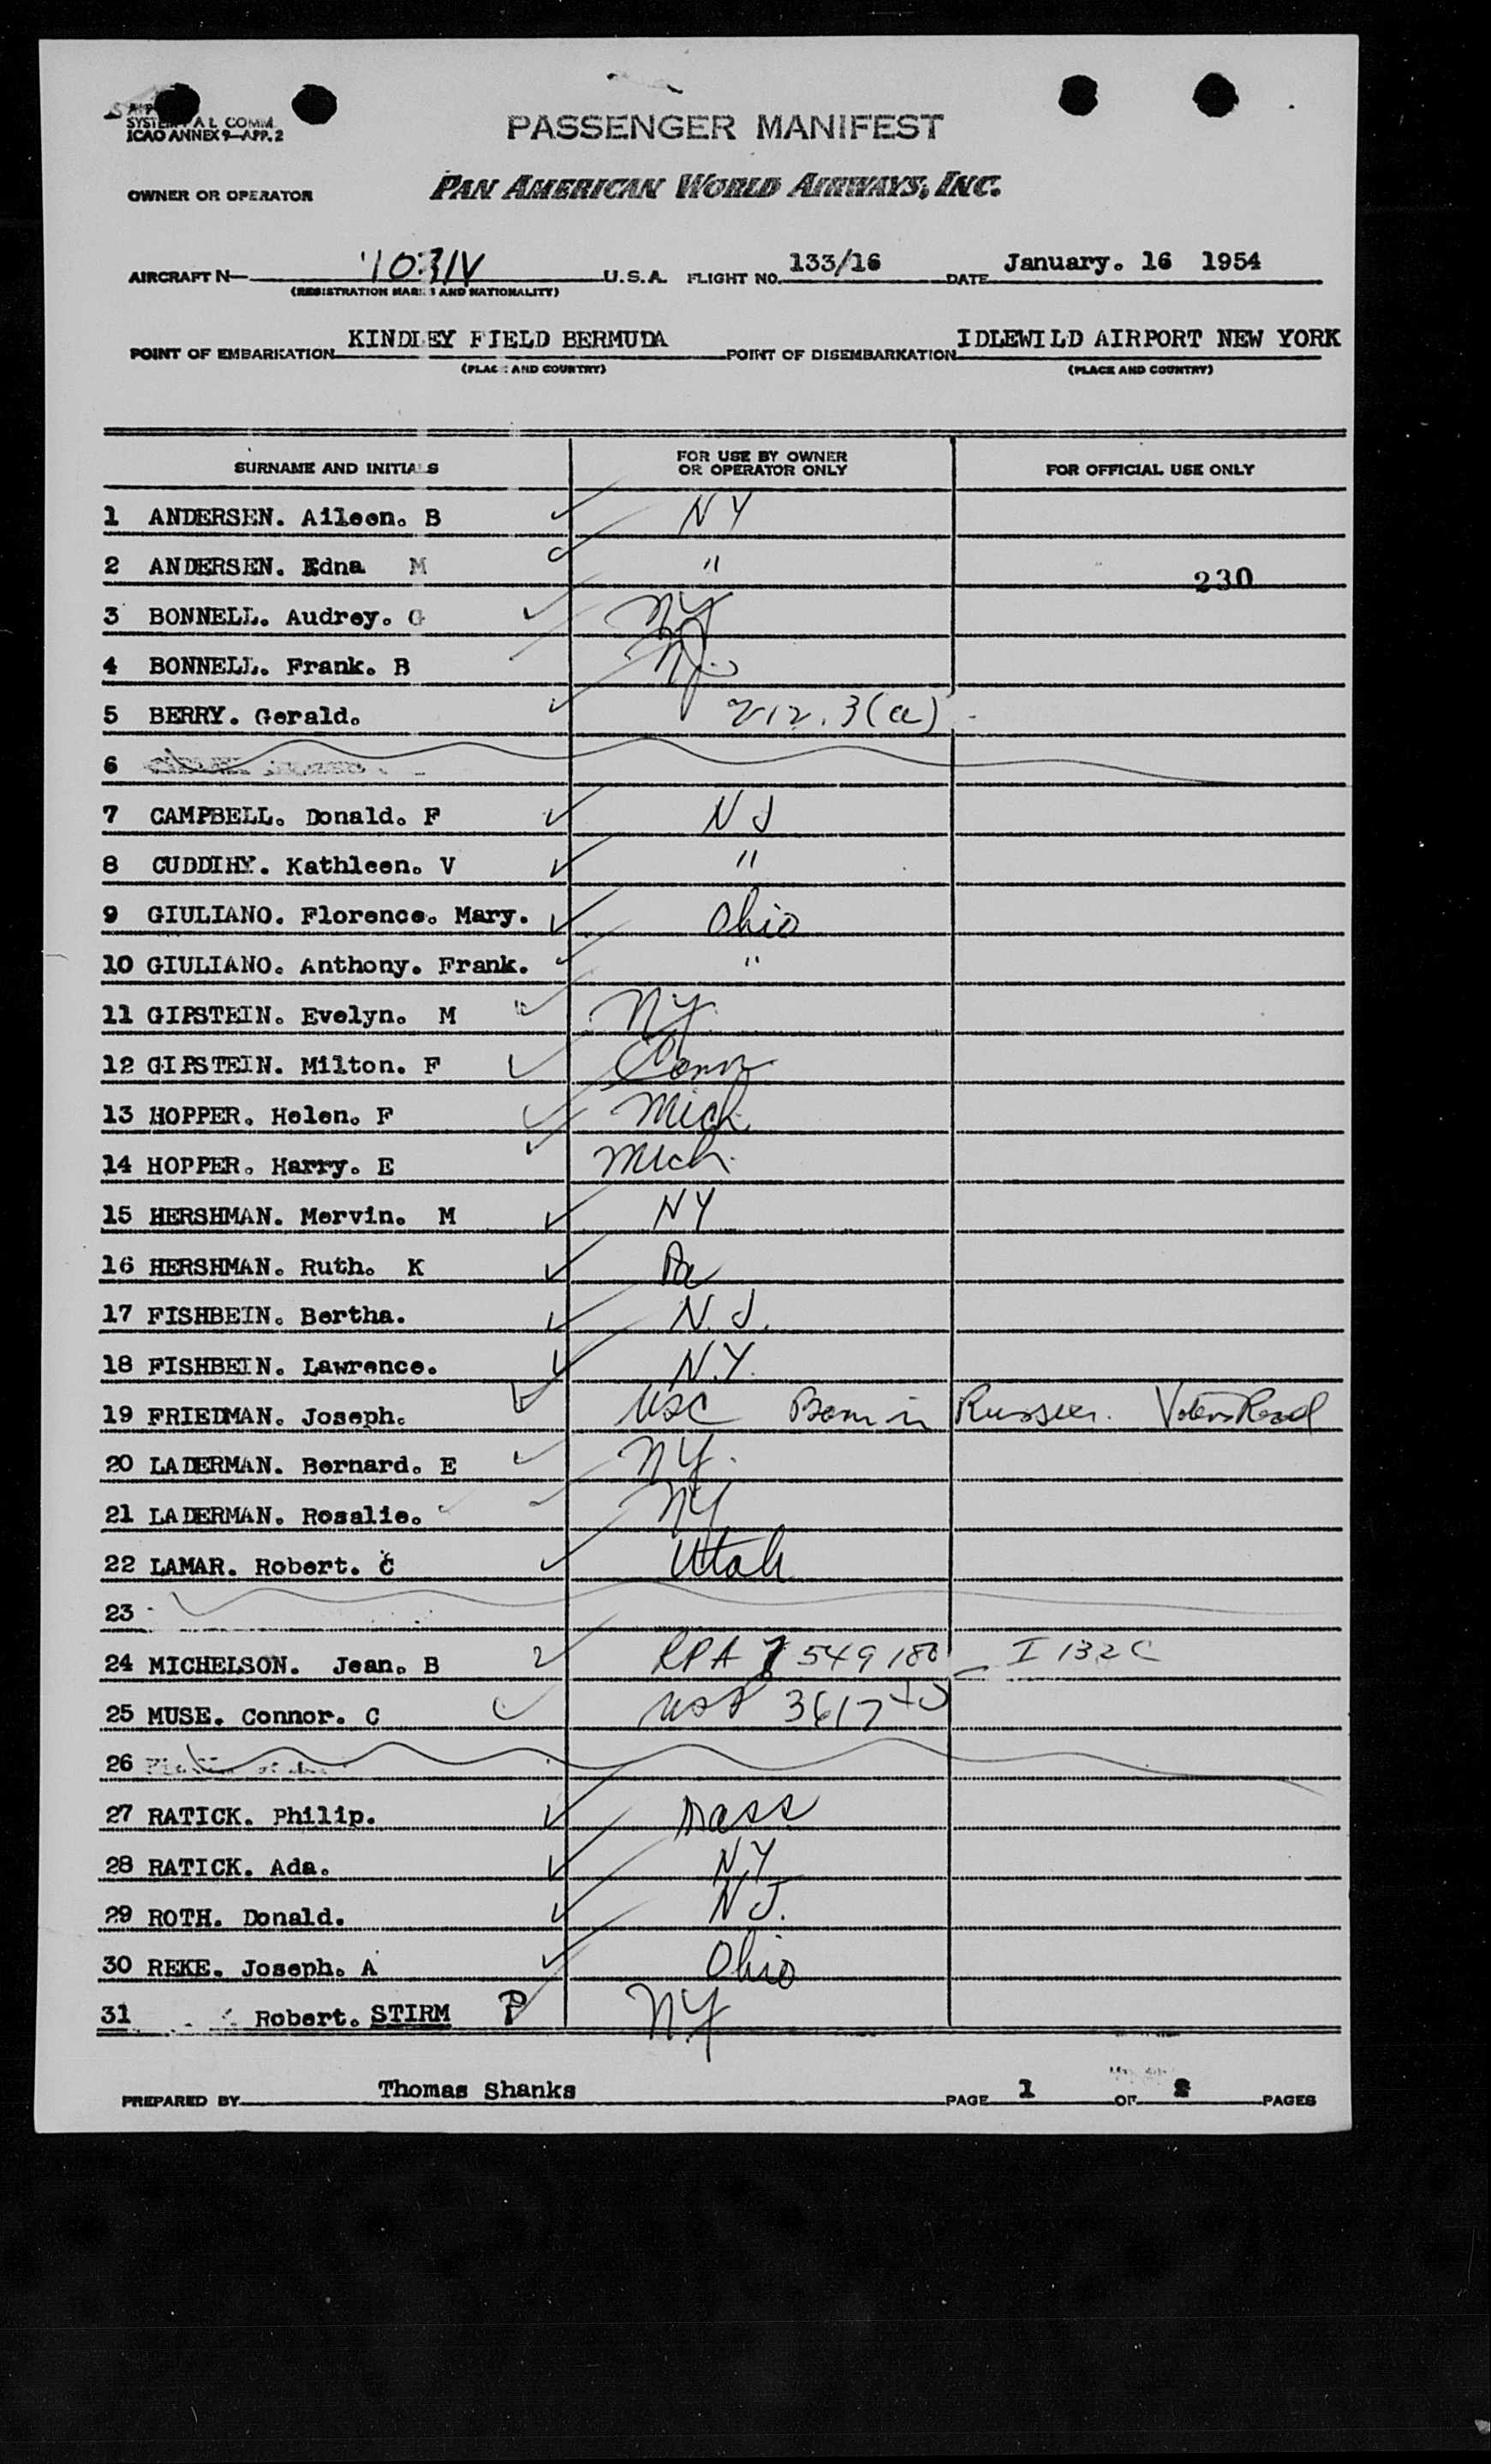 SYSTEM A L COMM.
ICAO ANNEX 9—APP. 2
PASSENGER MANIFEST
OWNER OR OPERATOR PAN AMERICAN WORLD AIRWAYS, INC.
AIRCRAFT N— U.S.A. FLIGHT NO. 133/16 DATE January. 16 1954
(REGISTRATION MARKS AND NATIONALITY)
POINT OF EMBARKATION KINDLEY FIELD BERMUDA POINT OF DISEMBARKATION IDLEWILD AIRPORT NEW YORK
(PLACE AND COUNTRY) (PLACE AND COUNTRY)
SURNAME AND INITIALS FOR USE BY OWNER OR OPERATOR ONLY FOR OFFICIAL USE ONLY
1 ANDERSEN. Aileen. B NY
2 ANDERSEN. Edna M " 230
3 BONNELL. Audrey. G NY
4 BONNELL. Frank. B NJ.
5 BERRY. Gerald. 212.3(a)
6
7 CAMPBELL. Donald. F NJ
8 CUDDIHY. Kathleen. V "
9 GIULIANO. Florence. Mary. Ohio
10 GIULIANO. Anthony. Frank. "
11 GIPSTEIN. Evelyn. M NY.
12 GIPSTEIN. Milton. F Conn
13 HOPPER. Helen. F Mich.
14 HOPPER. Harry. E Mich.
15 HERSHMAN. Mervin. M NY
16 HERSHMAN. Ruth. K Pa
17 FISHBEIN. Bertha. N.J.
18 FISHBEIN. Lawrence. N.Y.
19 FRIEDMAN. Joseph. USC Born in Russia.
20 LADERMAN. Bernard. E NY.
21 LADERMAN. Rosalie. NY
22 LAMAR. Robert. C Utah
23
24 MICHELSON. Jean. B RPA 549180 I 132C
25 MUSE. Connor. C 3617
26
27 RATICK. Philip. Mass
28 RATICK. Ada. NY
29 ROTH. Donald. NJ.
30 REKE. Joseph. A Ohio
31 Robert. STIRM P NY
PREPARED BY Thomas Shanks PAGE 1 OF 2 PAGES